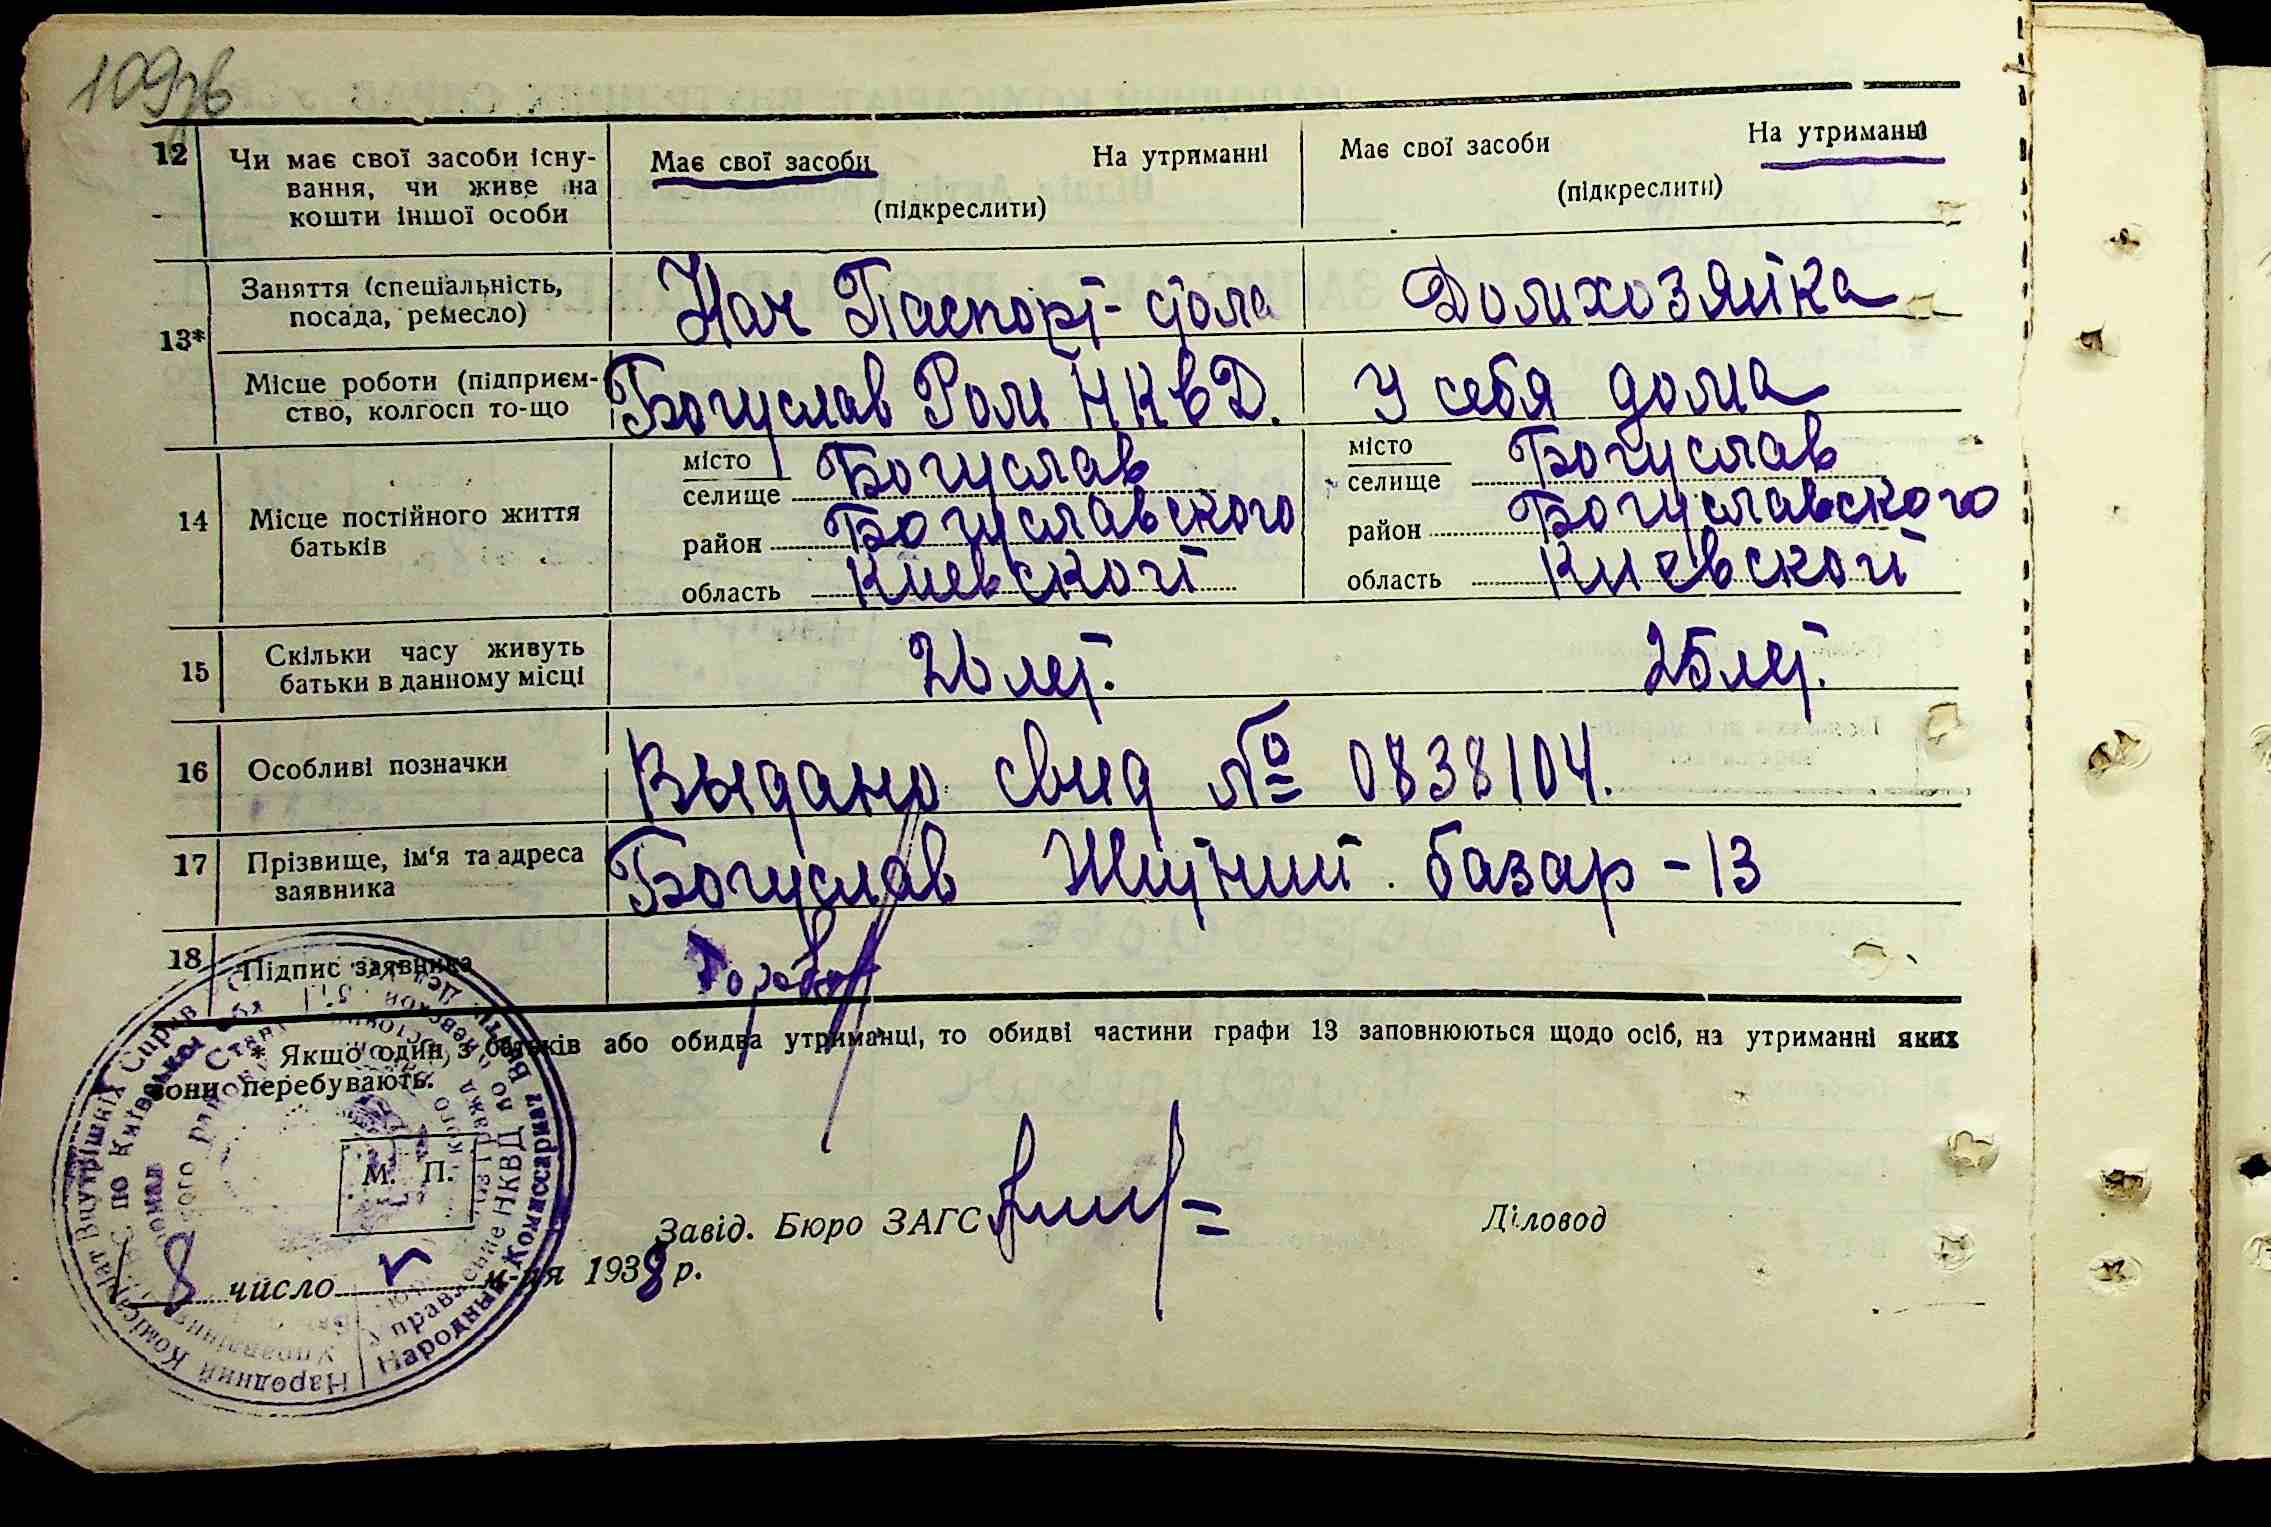 109зв
12 Чи має свої засоби існу- Має свої засоби На утриманні Має свої засоби На утриманні
вання, чи живе на (підкреслити) (підкреслити)
кошти іншої особи
13* Заняття (спеціальність, Нач Паспорт-стола Домхозяйка
посада, ремесло)
Місце роботи (підприєм- Богуслав Ром НКВД. У себя дома
ство, колгосп то-що
14 Місце постійного життя місто Богуслав місто Богуслав
батьків селище селище
район Богуславского район Богуславского
область Киевской область Киевской
15 Скільки часу живуть 26 лет. 25 лет.
батьки в данному місці
16 Особливі позначки Выдано свид № 0838104.
17 Прізвище, ім'я та адреса Богуслав Житний базар - 13
заявника
18 Підпис заявника
* Якщо один з батьків або обидва утриманці, то обидві частини графи 13 заповнюються щодо осіб, на утриманні яких
вони перебувають.
М. П.
Завід. Бюро ЗАГС Діловод
8 число м-ця 1938 р.
Народний Комісаріат Внутрішніх Справ
Управління по Київській обл
Народный Комиссариат Внутр. Дел
Управление НКВД по Киевской